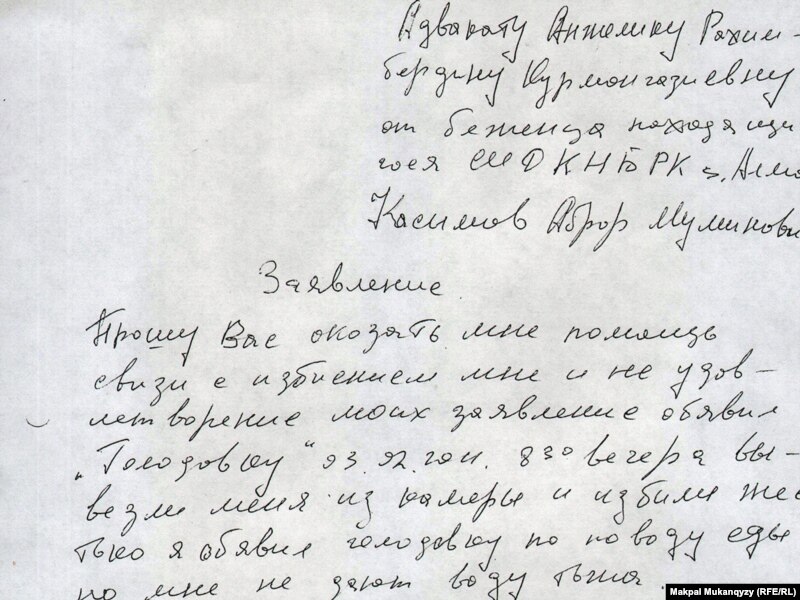 Адвакату Анжелику Рахим-
бердину Курмонгазиевну
от беженца находящи
гося СИ ДКНБРК г. Алма
Касимов Аброр Муминови
Заявление
Прошу Вас окозать мне помощь
свизи с избиением мне и не удов-
летворение моих заявление обявил
„Голодовку" 03.02.2011. 830 вечера вы-
везли меня из камеры и избили жес
тько я обявил голодовку по поводу еды
но мне не дают воду
Makpal Mukanqyzy (RFE/RL)